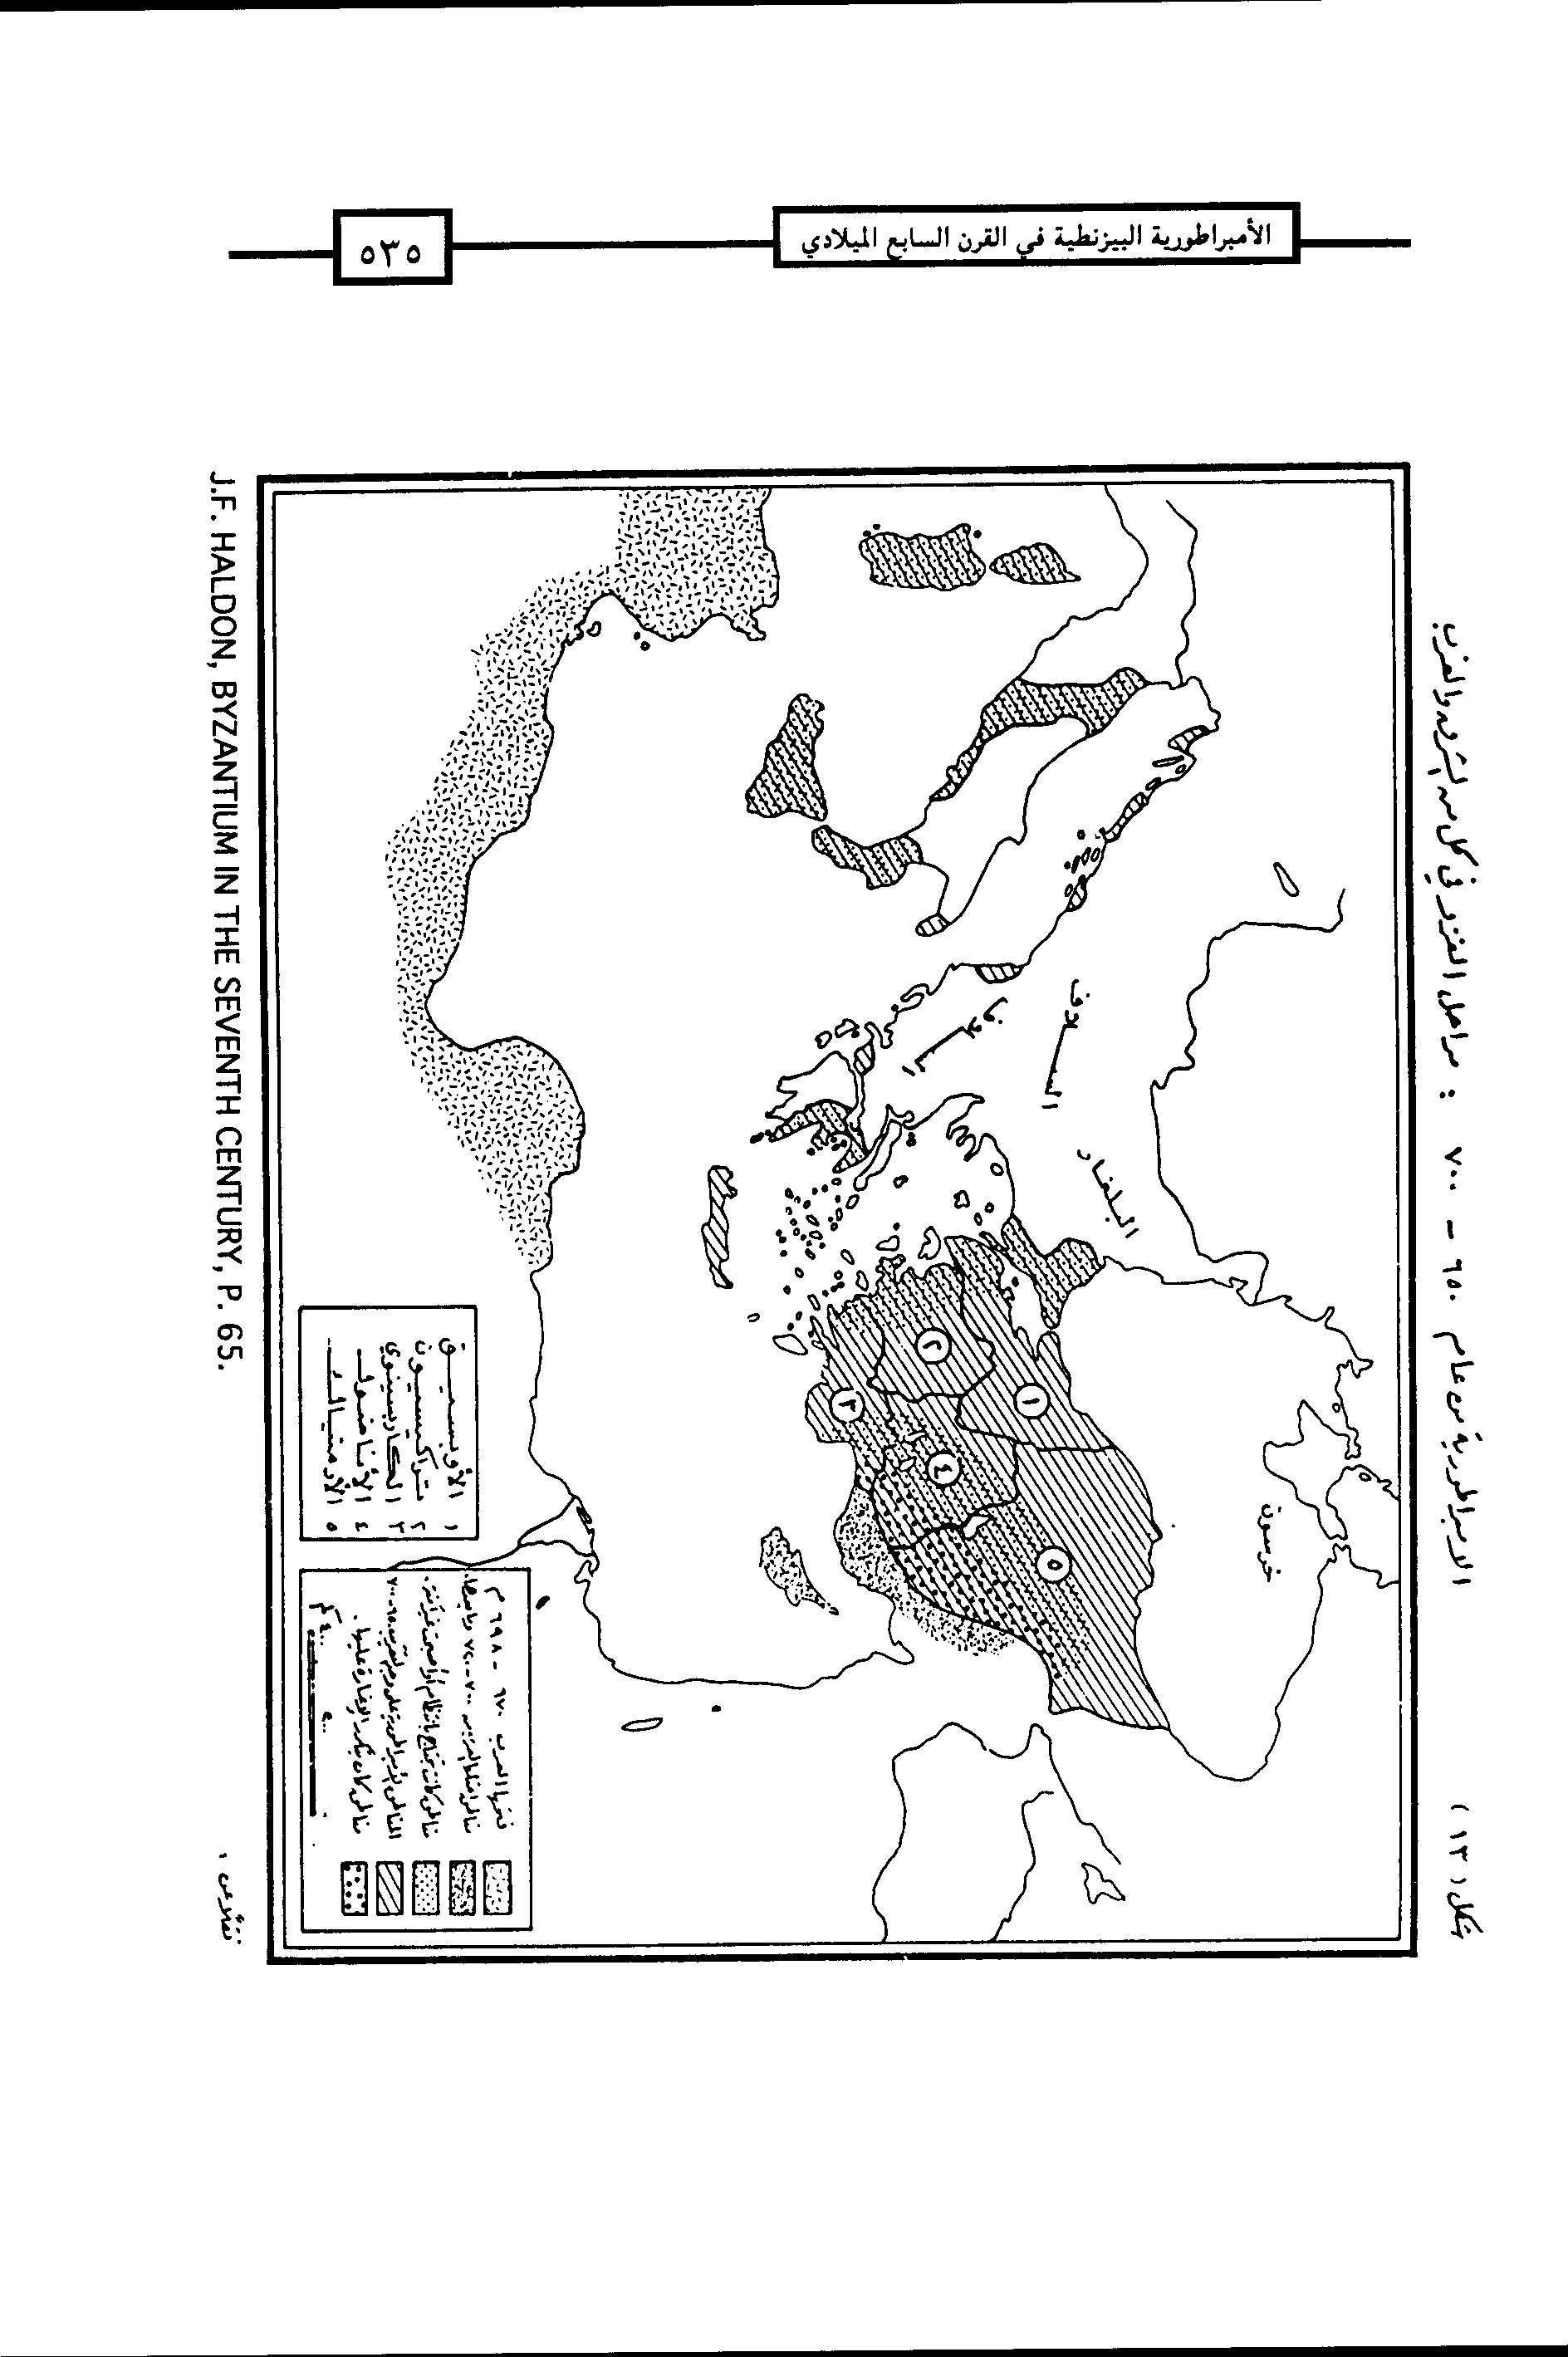 الأمبراطورية البيزنطية في القرن السابع الميلادي
٥٣٥
شكل (١٣) الامبراطورية من عام ٦٥٠ - ٧٠٠ : مراحل الغزو في كل من الشرق والغرب
خرسون
البلغار
السلاف
السلاف
١
٢
٣
٤
٥
١ الأوبسيق
٢ تراكيسيون
٣ الكارابيسيني
٤ الأناضول
٥ الأرمنياك
فتحها العرب ٦٧٠ - ٦٩٨ م
مناطق احتلها العرب ٧٠٠-٧٢٠
مناطق كانت تجتاح بانتظام أو أصبحت غير آمنة.
مناطق كان يتكرر الإغارة عليها.
٠ ٤٠٠ كم
نقلا عن :
J.F. HALDON, BYZANTIUM IN THE SEVENTH CENTURY, P. 65.